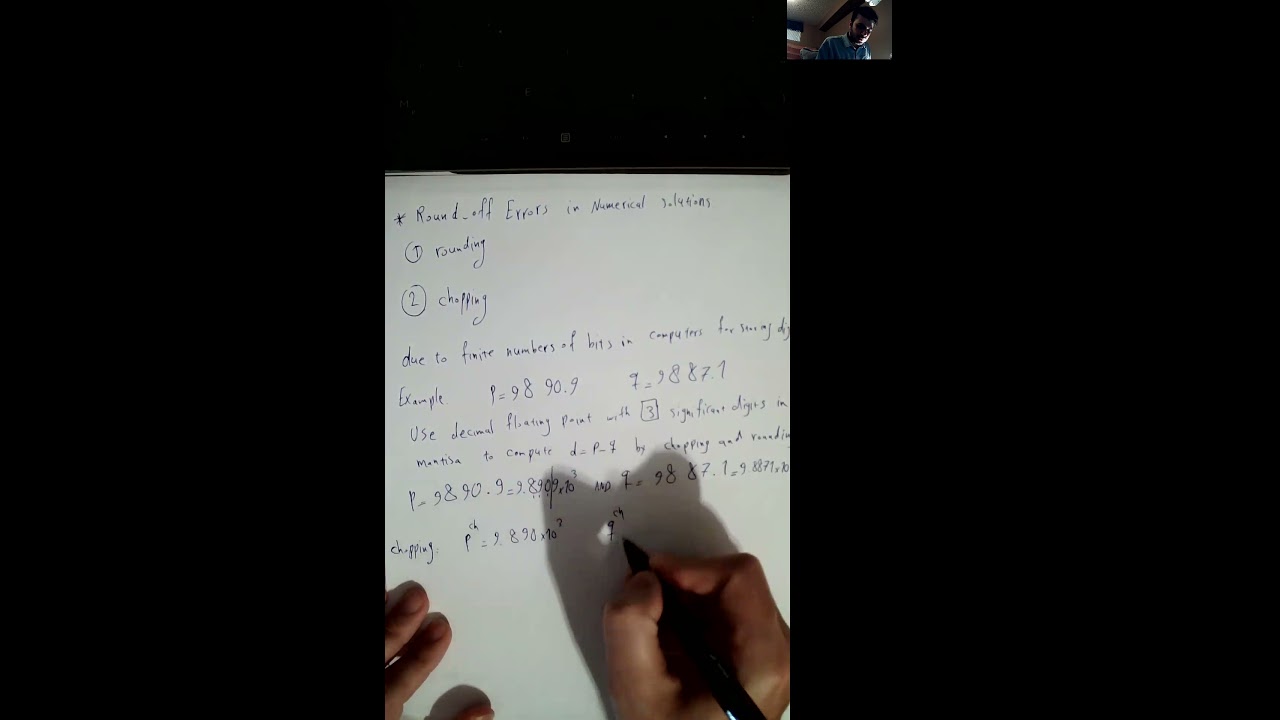 * Round-off Errors in Numerical solutions
① rounding
② chopping
due to finite numbers of bits in computers for storing dig
Example P=9890.9 q=9887.1
Use decimal floating point with 3 significant digits in
mantisa to compute d=P-q by chopping and roundin
P=9890.9=9.8909x10³ AND q=9887.1=9.8871x10
chopping: P^ch=9.890x10³ q^ch